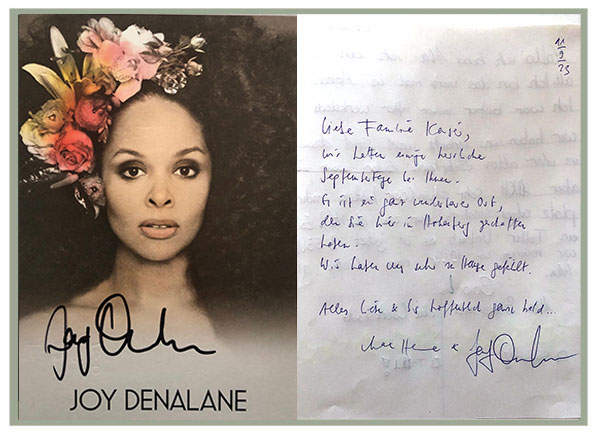 Joy Denalane
JOY DENALANE
11
9
23
Liebe Familie
wir hatten einige herrliche
Septembertage bei Ihnen.
Es ist ein ganz wunderbarer Ort,
den Sie hier in geschaffen
haben.
Wir haben uns sehr zu Hause gefühlt.
Alles Liebe & bis hoffentlich ganz bald...
Max Herre & Joy Denalane